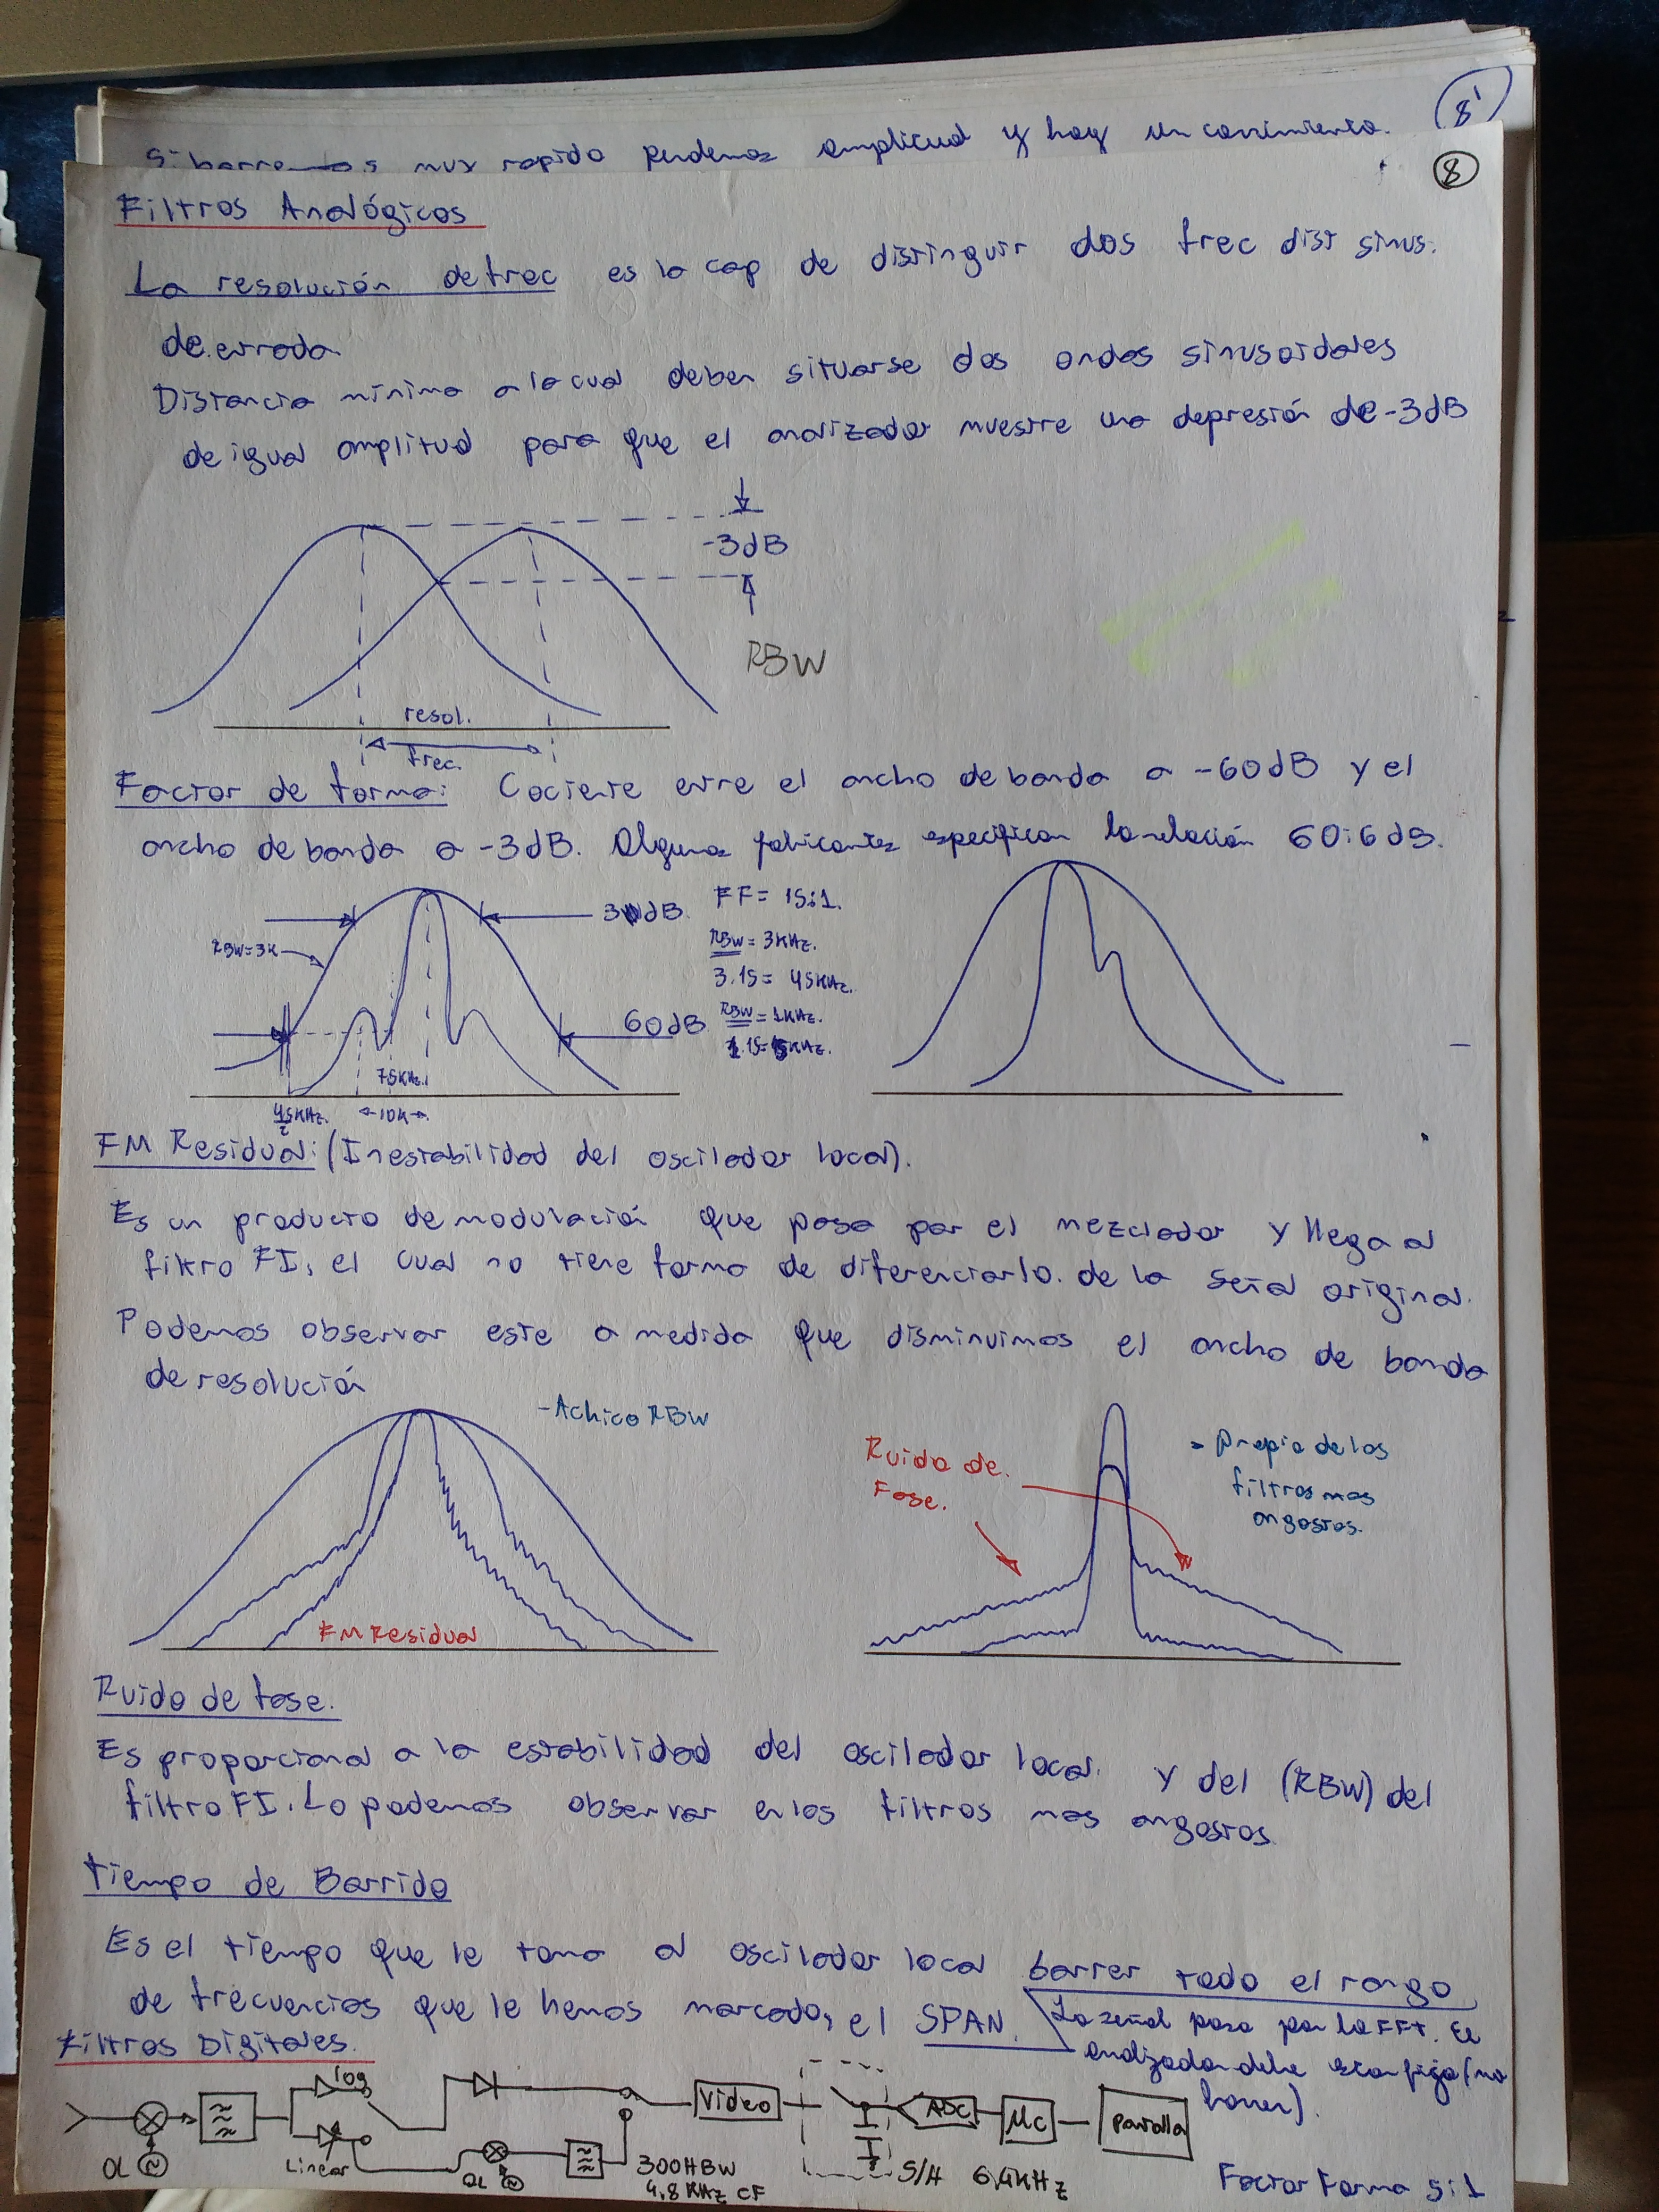 Si barremos muy rapido perdemos amplitud y hay un corrimiento.
8'
8
Filtros Analógicos
La resolución de frec es la cap de distinguir dos frec dist sinus.
de entrada
Distancia mínima a la cual deben situarse dos ondas sinusoidales
de igual amplitud para que el analizador muestre una depresión de -3dB
-3dB
RBW
resol.
frec.
Factor de forma: Cociente entre el ancho de banda a -60dB y el
ancho de banda a -3dB. Algunos fabricantes especifican la relación 60:6dB.
RBW=3K
3dB
FF= 15:1.
RBW = 3KHz.
3.15= 45KHz.
60dB
RBW = 1KHz.
1.15=15KHz.
7,5KHz.
45KHz.
2
10K
FM Residual: (Inestabilidad del oscilador local).
Es un producto de modulación que pasa por el mezclador y llega al
filtro FI, el cual no tiene forma de diferenciarlo. de la señal original.
Podemos observar este a medida que disminuimos el ancho de banda
de resolución
-Achico RBW
FM Residual
Ruido de
Fase.
- Propio de los
filtros mas
angostos.
Ruido de fase.
Es proporcional a la estabilidad del oscilador local. y del (RBW) del
filtro FI. Lo podemos observar en los filtros mas angostos
Tiempo de Barrido
Es el tiempo que le toma al oscilador local barrer todo el rango
de frecuencias que le hemos marcado, el SPAN.
La señal pasa por la FFT. El
analizador debe estar fijo (no
barrer).
Filtros Digitales.
log
Linear
OL
OL
300HBW
4,8 KHz CF
Video
S/H
6,4KHz
ADC
µC
Pantalla
Factor Forma 5:1